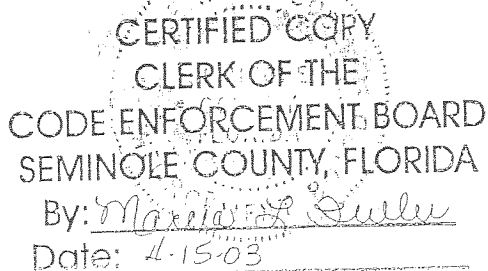 CERTIFIED COPY
CLERK OF THE
CODE ENFORCEMENT BOARD
SEMINOLE COUNTY, FLORIDA
By: L
Date: 4-15-03